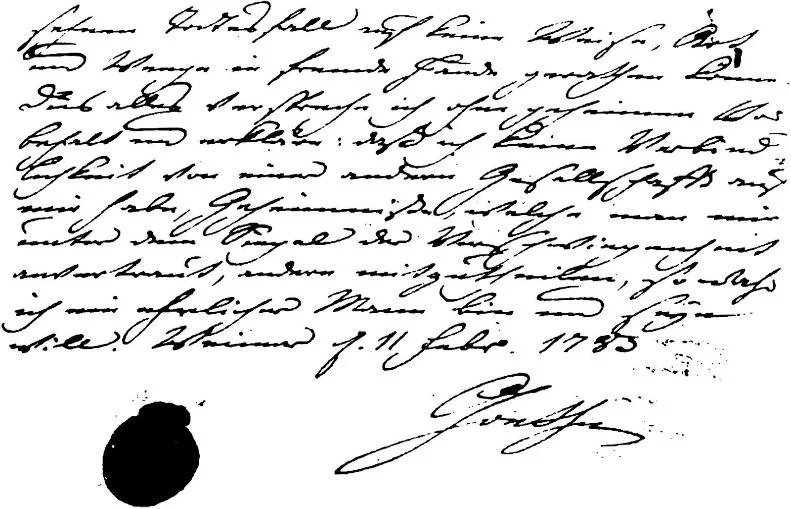 seinen Todesfall auf keine Weise, Art
und Wege in fremde Hände gerathen könne
Dies alles verspreche ich ohne geheimen Vor
behalt und erkläre: daß ich keine Verbind
lichkeit von einer andern Gesellschafft auf
mir habe, Geheimnisse, welche man mir
unter dem Siegel der Verschwiegenheit
anvertraut, andern mitzutheilen, so wahr
ich ein ehrlicher Mann bin und seyn
will. Weimar d. 11 Febr. 1783
Goethe